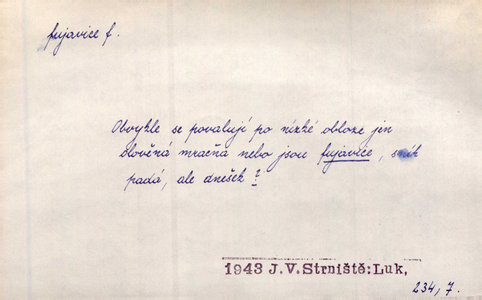 fujavice f.
Obvykle se povalují po nízké obloze jen
olověná mračna nebo jsou fujavice, sníh
padá, ale dnešek?
1943 J.V.Strniště:Luk,
234,7.